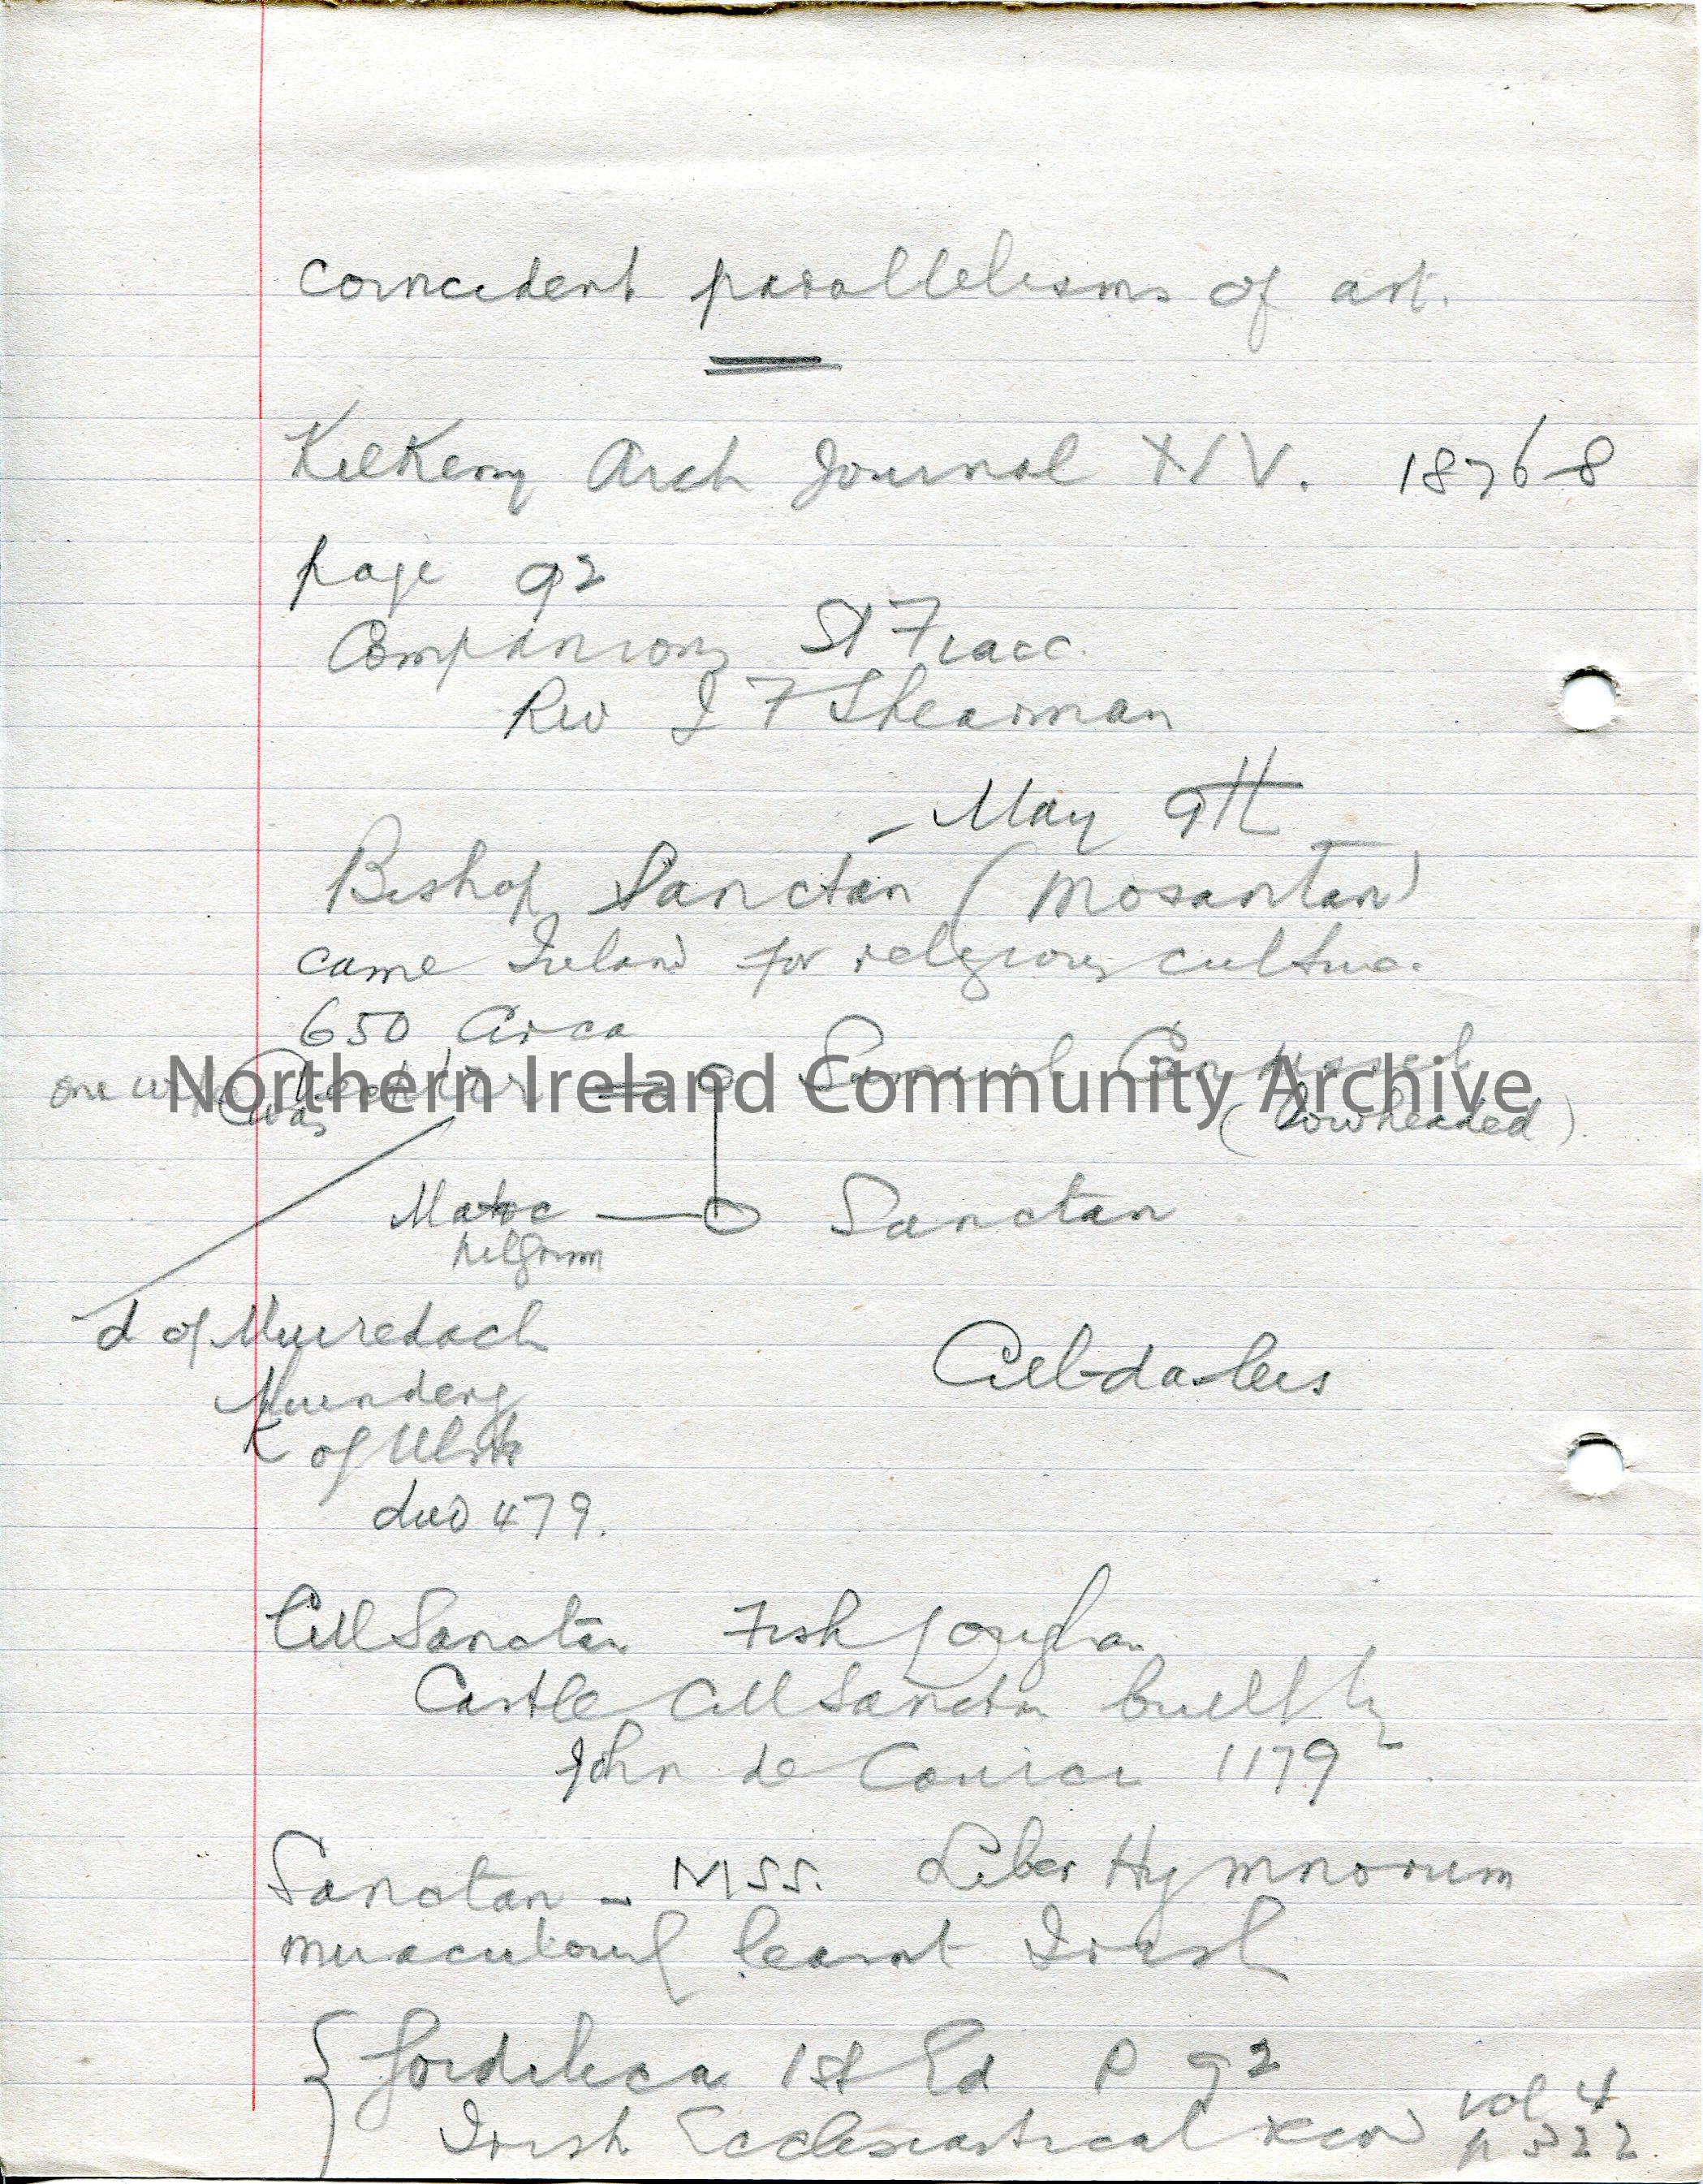 coincident parallelisms of art.
Kilkenny Arch Journal XIV. 1876-8
page 92
Companions St Fiacc.
Rev J F Shearman
- May 9th
Bishop Sanctan (Mosantan)
came Ireland for religious culture.
650 Circa
one wife was = Samuel
(lowheaded).
Northern Ireland Community Archive
Matoc — Sanctan
pilgrim
d of Muiredach
Muinderg
K of Ulster
died 479.
Cill-da-leis
Cill Sanctan Fish loughan
Castle Cill Sanctan built by
John de Courci 1179
Sanctan - MSS. Liber Hymnorum
miraculously learnt Irish
Goidelica 1st Ed P 92
Irish Ecclesiastical Record vol 4
p 322